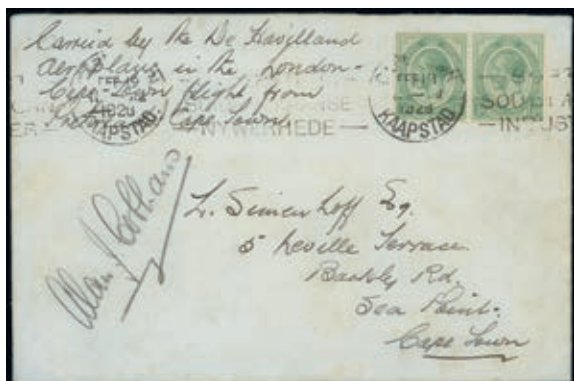 Carried by the De Havilland
Aeroplane in the London-
Cape Town flight from
Pretoria to Cape Town
FEB 19
1926
KAAPSTAD
FEB 19
1926
KAAPSTAD
NYWERHEDE
Alan J Cobham
L. Simenhoff Esq.
5 Neville Terrace
Barkly Rd.
Sea Point.
Cape Town